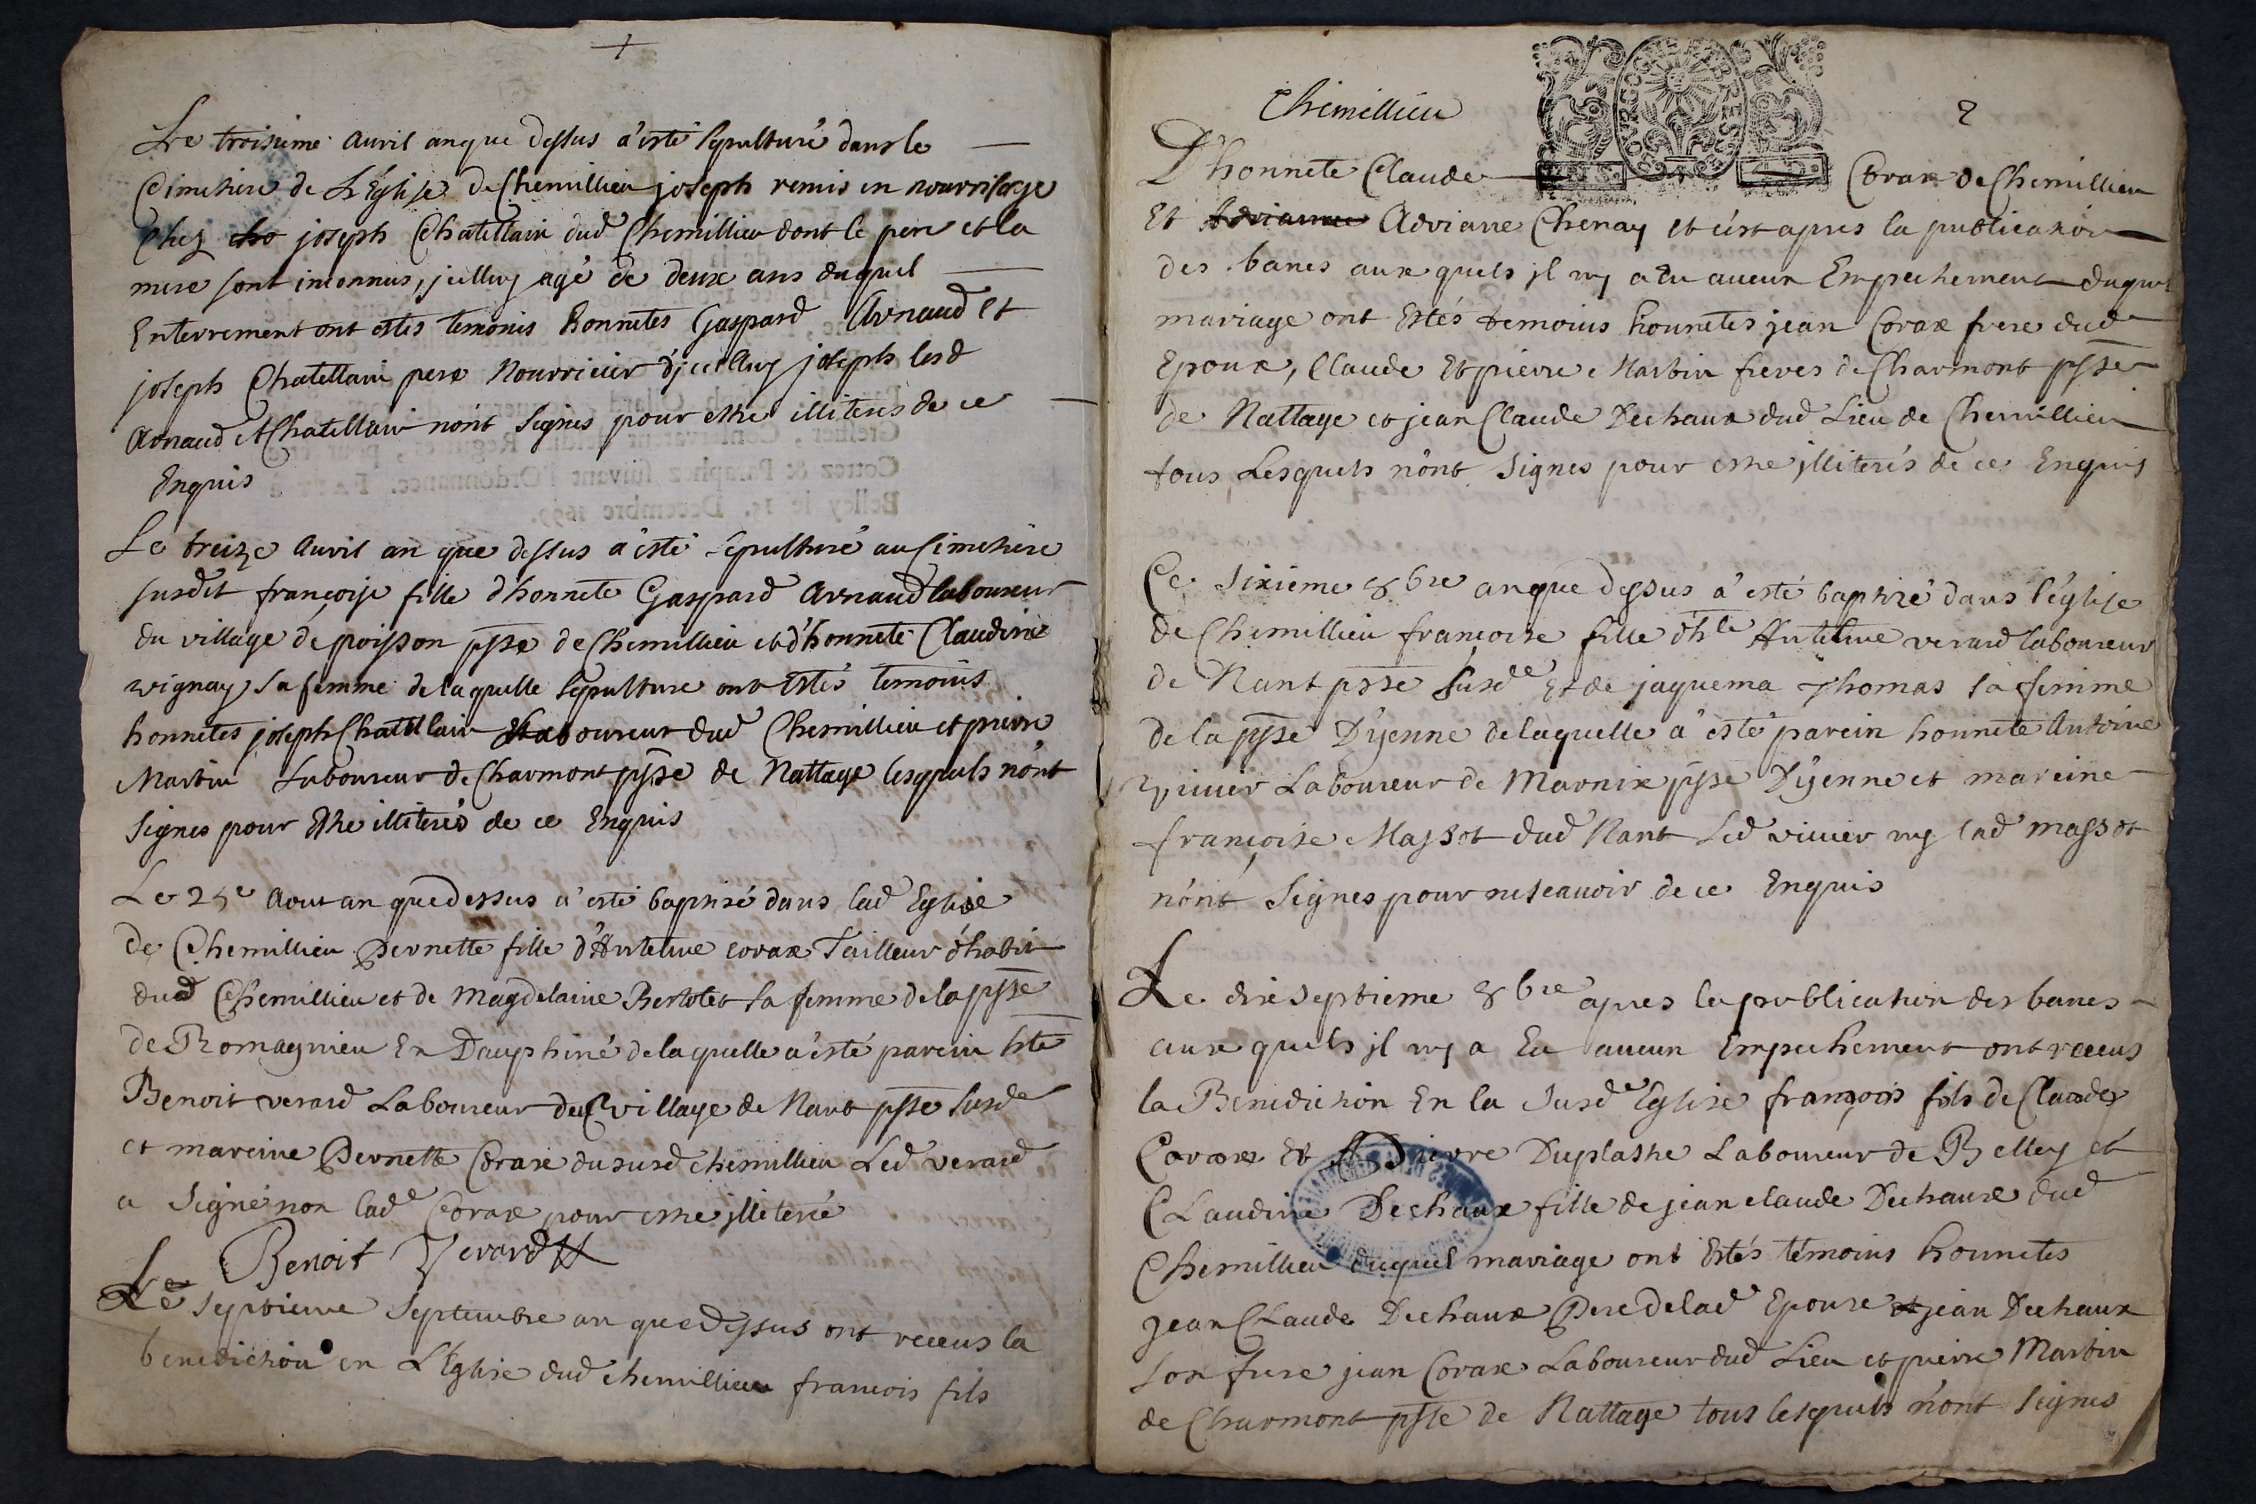 Le troisieme auril an que dessus a esté sepulturé dans le
Cimetiere de L'Eglise de Chemillieu joseph remis en nourrissage
chez joseph Chatellain dud Chemillieu dont le pere et la
mere sont inconnus, jcelluy agé de deux ans duquel
Enterrement ont estés temonis honnetes Gaspard Arnaud et
joseph Chatellain pere Nourricier d'jcelluy joseph lesd
Arnaud et Chatellain n'ont signes pour estre illiterés de ce
Enquis
Le treize auril an que dessus a esté sepulturé au Cimetiere
susdit françoise fille d'honnete Gaspard Arnaud laboureur
du village de poisson psse de Chemillieu et d'honnete Claudine
vignay sa femme de laquelle sepulture ont estés temoins
honnetes joseph Chatellain Laboureur dud Chemillieu et pierre
Martin Laboureur de Charmont psse de Nattage lesquels n'ont
signes pour Estre illiterés de ce Enquis
Le 25e Aout an que dessus a esté baptisé dans lad Eglise
de Chemillieu Pernette fille d'Antelme corax Tailleur d'habit
dud Chemillieu et de Magdelaine Bertolet sa femme de la psse
de Romagnieu En Dauphiné de laquelle a esté parein hte
Benoit verard Laboureur du village de Nant psse susde
et mareine Pernette Corax du susd chemillieu Led verard
a signé non lade Corax pour estre jlliterée
Benoit Verard
Le septieme septembre an que dessus ont receus la
benediction en L'Eglise dud chemillieu francois fils
Chimillieu
2
D'honnete Claude Corax de Chemillieu
Et Adrianne Adriane Chenay et c'est apres la publication
des bancs aux quels jl ny a Eu aucun Empechement duquel
mariage ont Estés temoins honnetes jean Corax frere dud
Epoux, Claude Et pierre Martin freres de Charmont psse
de Nattage et jean Claude Dechaux dud Lieu de Chemillieu
tous Lesquels n'ont signes pour estre jlliterés de ce Enquis
Ce sixieme 8bre an que dessus a esté baptizé dans l'église
de Chimillieu françoise fille d'hle Antelme verard laboureur
de Nant psse susde Et de jaquema Thomas sa femme
de la psse D'yenne de laquelle a esté parein honnete Antoine
viuier Laboureur de Marnix psse D'yenne et mareine
françoise Massot dud Nant Led viuier ny lad massot
n'ont signes pour ne scauoir de ce Enquis
Le dix septieme 8bre apres la publication des bancs
aux quels jl ny a Eu aucun Empechement ont receus
la Benediction En la susde Eglise françois fils de Claude
Corax Et Pierre Duplastre Laboureur de Belley et
Claudine Dechaux fille de jean claude Dechaux dud
Chemillieu duquel mariage ont Estés témoins honnetes
jean Claude Dechaux Pere de lade Epouse et jean Dechaux
son frere jean Corax Laboureur dud Lieu et pierre Martin
de Charmont psse de Nattage tous lesquels n'ont signes